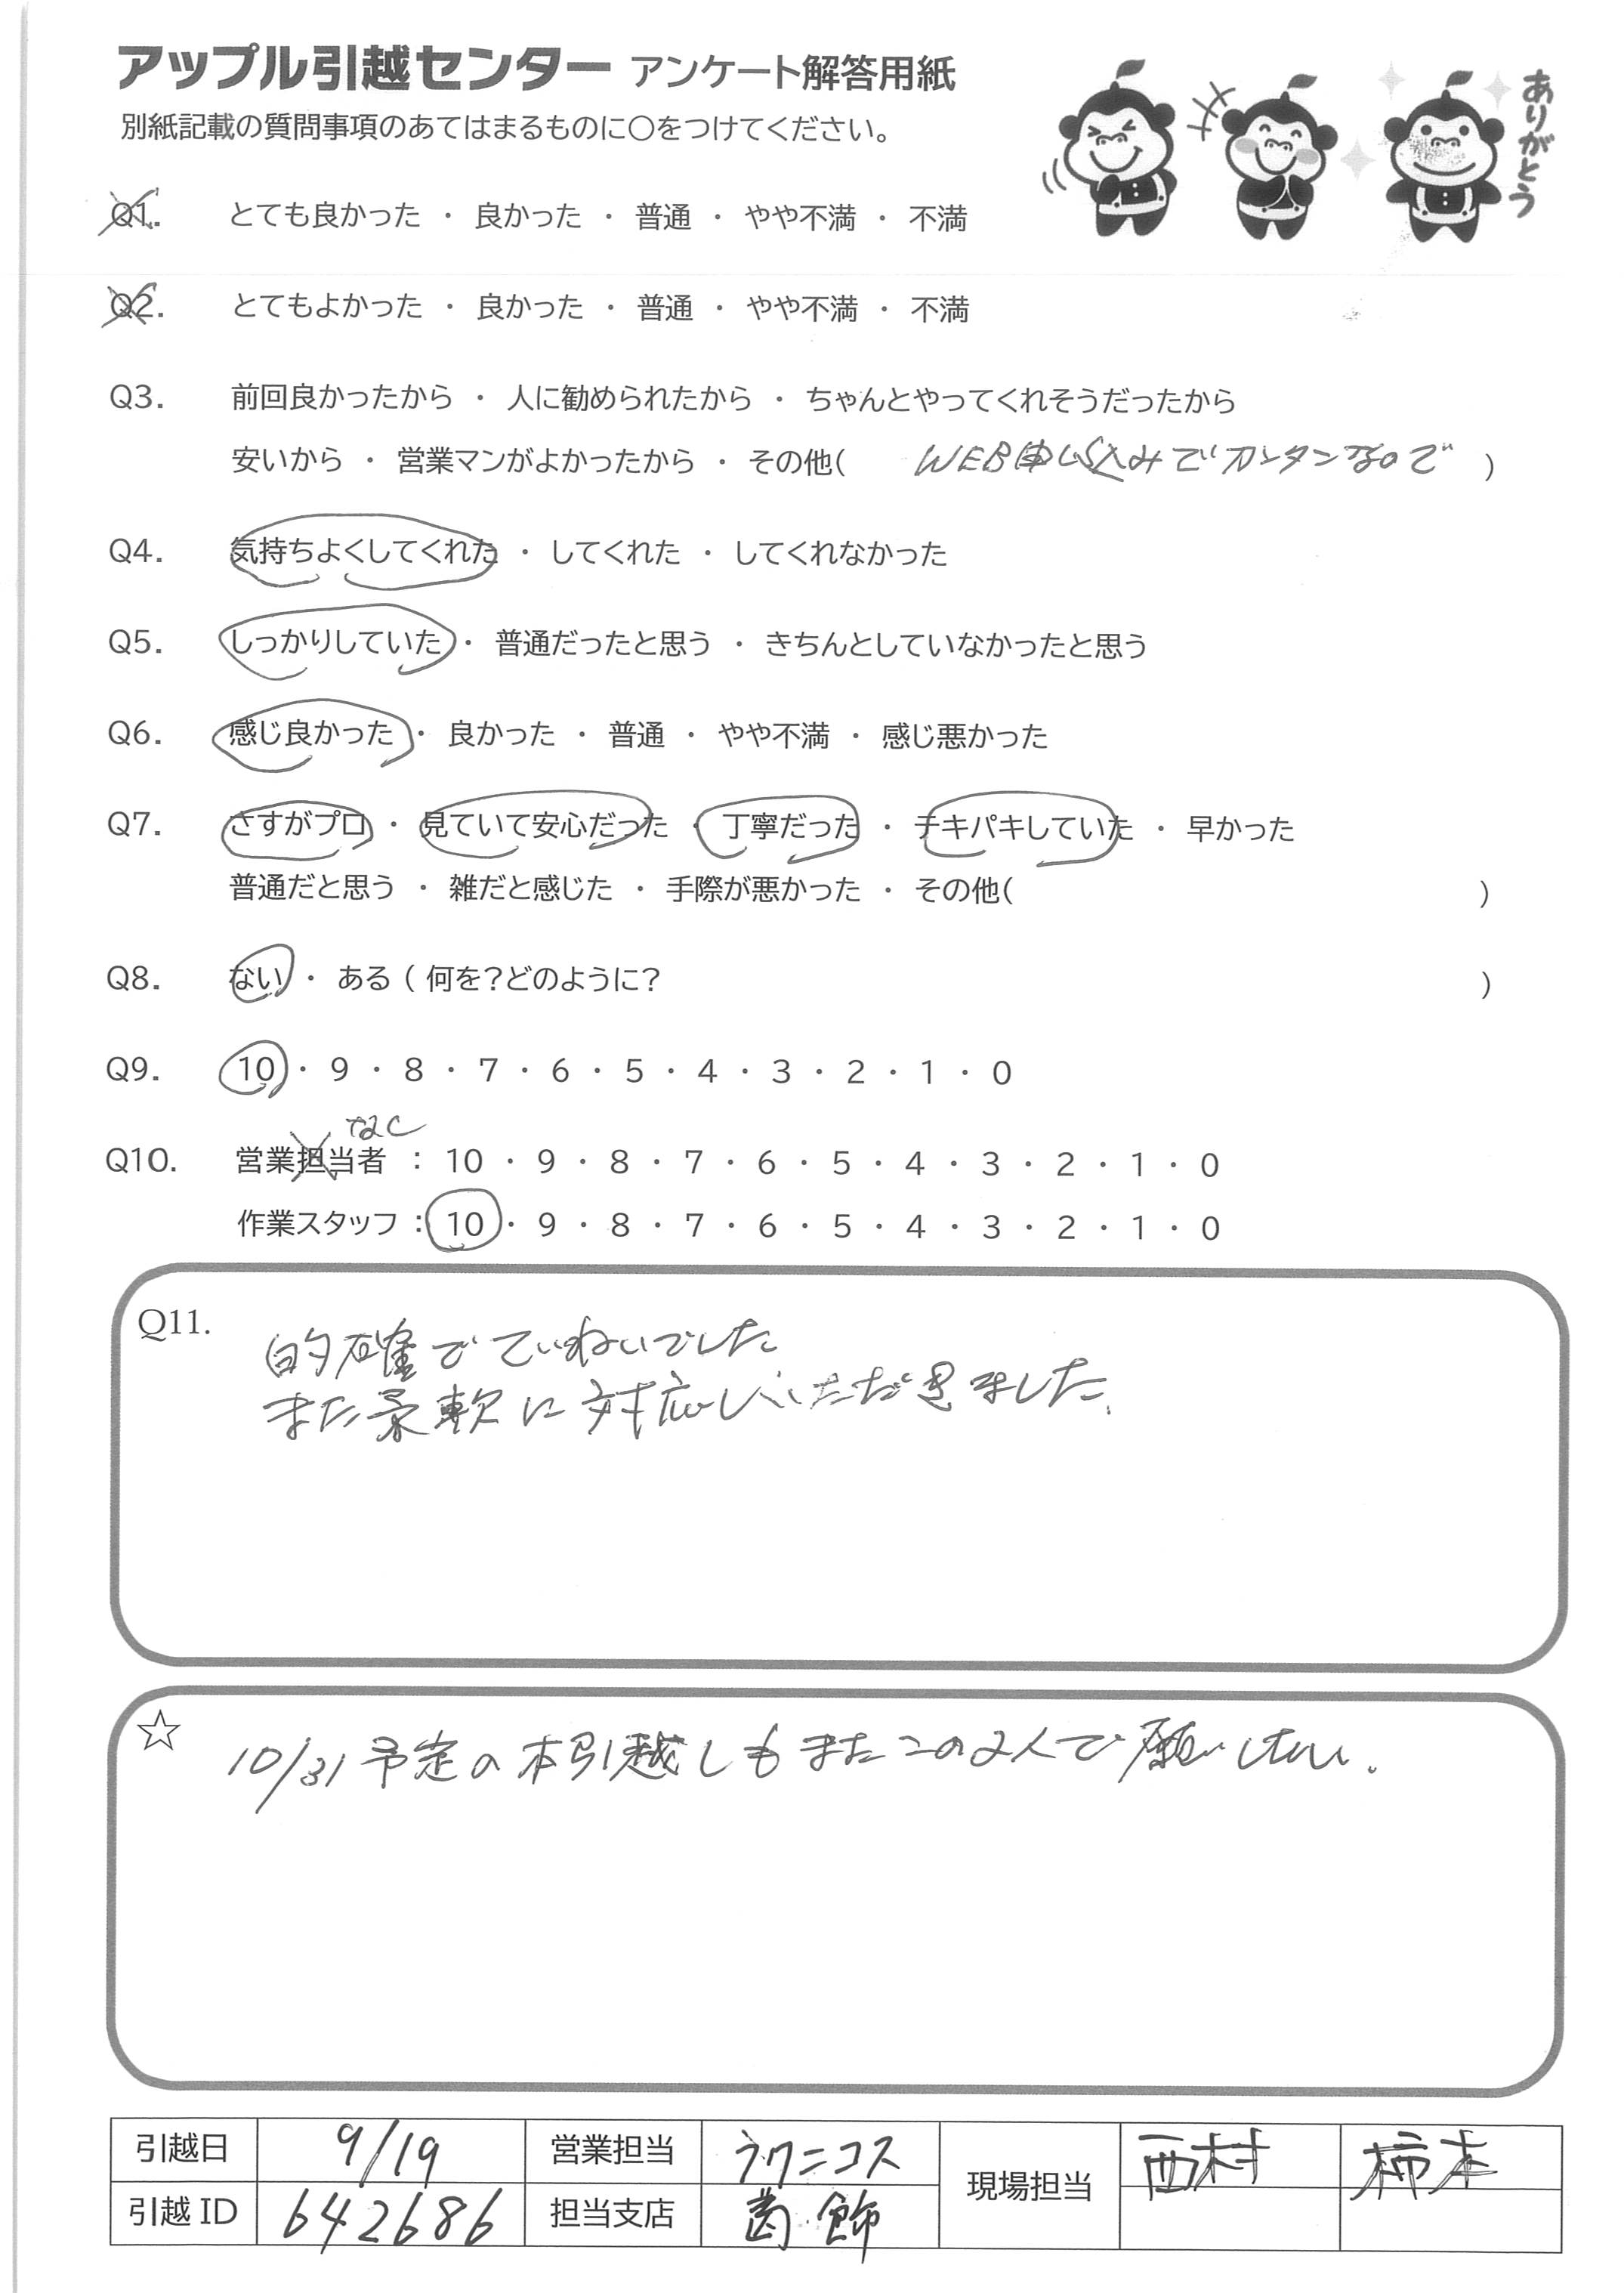 アップル引越センター アンケート解答用紙
別紙記載の質問事項のあてはまるものに〇をつけてください。
ありがとう
Q1. とても良かった ・ 良かった ・ 普通 ・ やや不満 ・ 不満
Q2. とてもよかった ・ 良かった ・ 普通 ・ やや不満 ・ 不満
Q3. 前回良かったから ・ 人に勧められたから ・ ちゃんとやってくれそうだったから
安いから ・ 営業マンがよかったから ・ その他( WEB申し込みでカンタンなので )
Q4. 気持ちよくしてくれた ・ してくれた ・ してくれなかった
Q5. しっかりしていた ・ 普通だったと思う ・ きちんとしていなかったと思う
Q6. 感じ良かった ・ 良かった ・ 普通 ・ やや不満 ・ 感じ悪かった
Q7. さすがプロ ・ 見ていて安心だった ・ 丁寧だった ・ テキパキしていた ・ 早かった
普通だと思う ・ 雑だと感じた ・ 手際が悪かった ・ その他( )
Q8. ない ・ ある ( 何を？どのように？ )
Q9. 10 ・ 9 ・ 8 ・ 7 ・ 6 ・ 5 ・ 4 ・ 3 ・ 2 ・ 1 ・ 0
なし
Q10. 営業担当者 ： 10 ・ 9 ・ 8 ・ 7 ・ 6 ・ 5 ・ 4 ・ 3 ・ 2 ・ 1 ・ 0
作業スタッフ ： 10 ・ 9 ・ 8 ・ 7 ・ 6 ・ 5 ・ 4 ・ 3 ・ 2 ・ 1 ・ 0
Q11.
的確でていねいでした
また柔軟に対応していただきました.
☆
10/31予定の本引越しもまたこの2人で願いしたい.
引越日 9/19 営業担当 ラクニコス 現場担当 西村 柿本
引越ID 642686 担当支店 葛飾